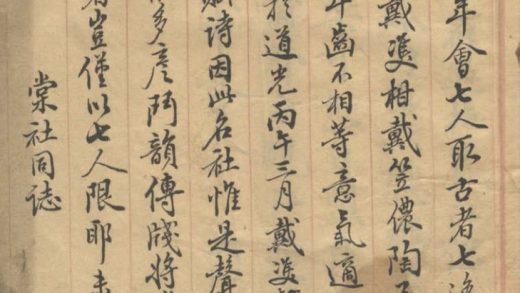 年會七人取古者七逸
戴湲相戴笠儂陶
年齒不相等意氣適
於道光丙午三月戴湲
詩因此名社惟是聲
多彥鬥韻傳牋將
豈僅以七人限耶
棠社同誌